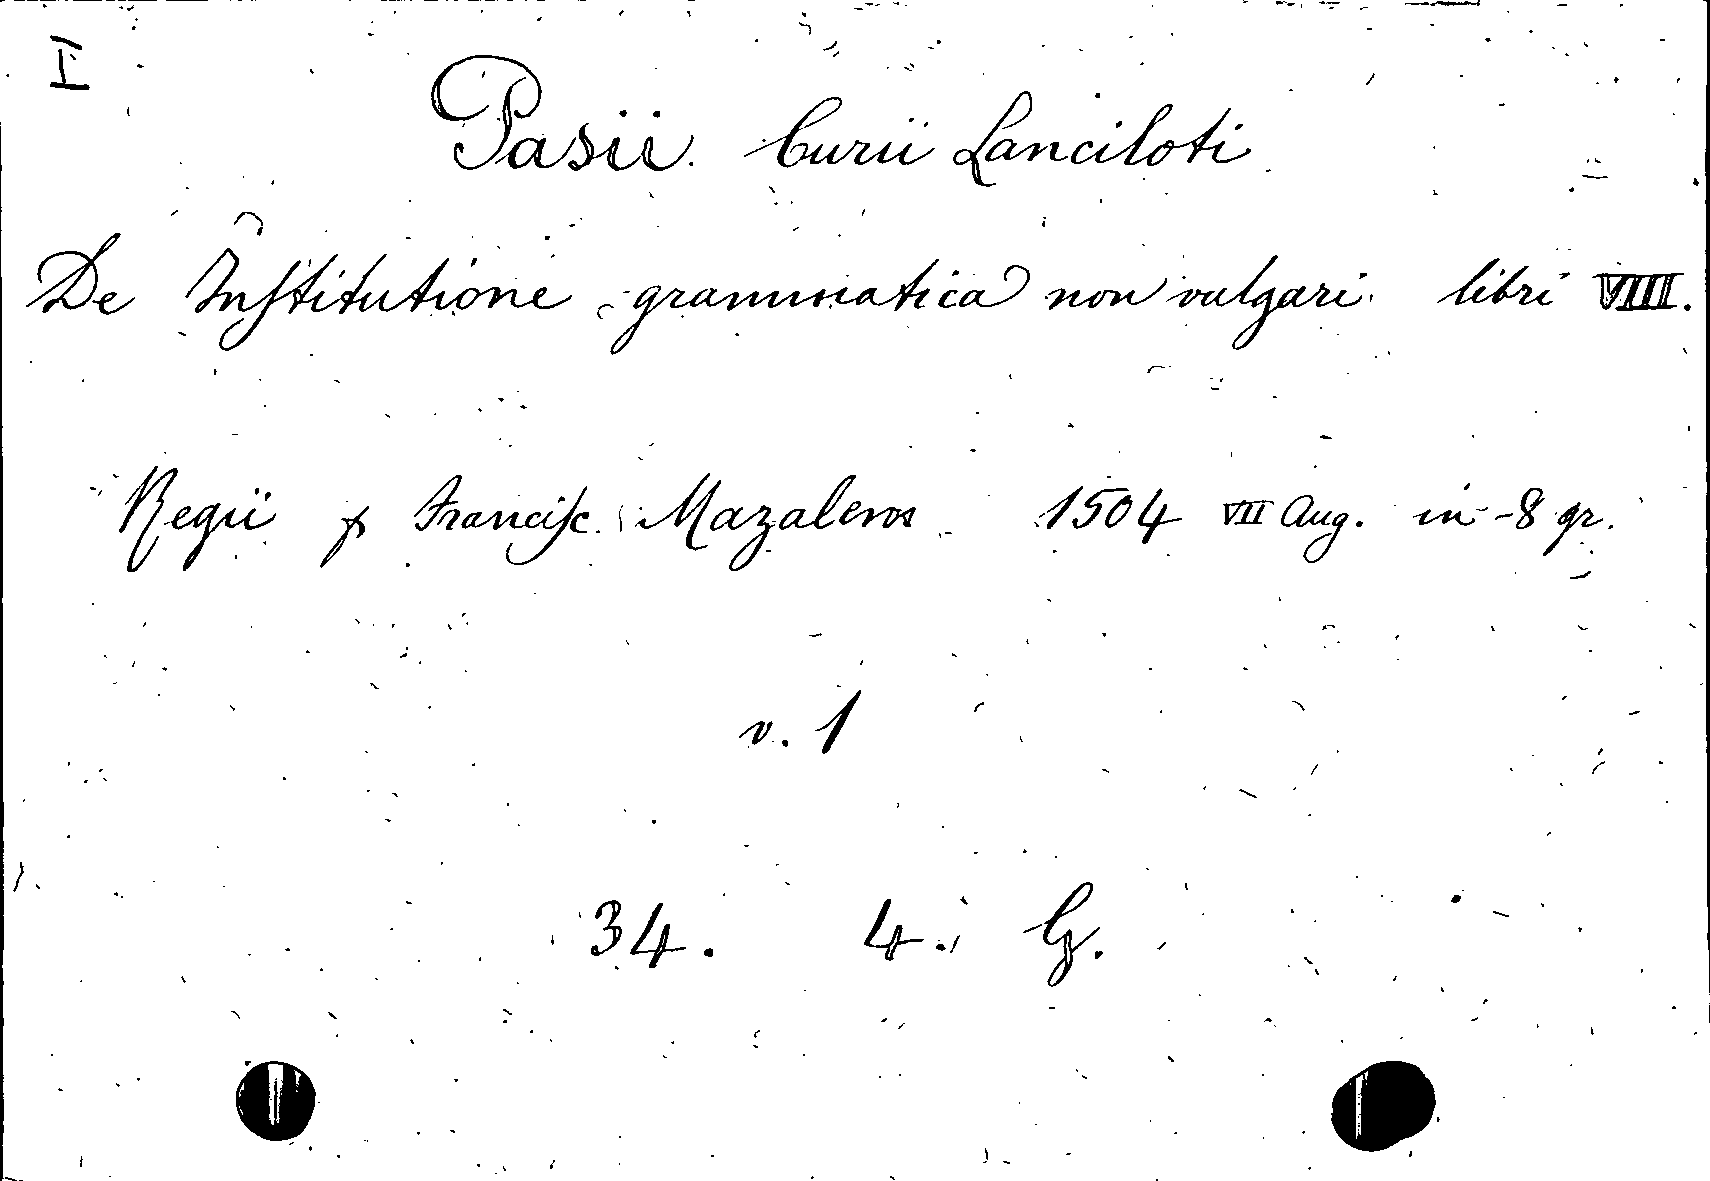 I
Pasii. Curii Lanciloti
De Institutione grammatica non vulgari libri VIII.
Regii p Francisc. Mazaleros 1504 VII Aug. in-8 gr.
v. 1
34. 4. G.